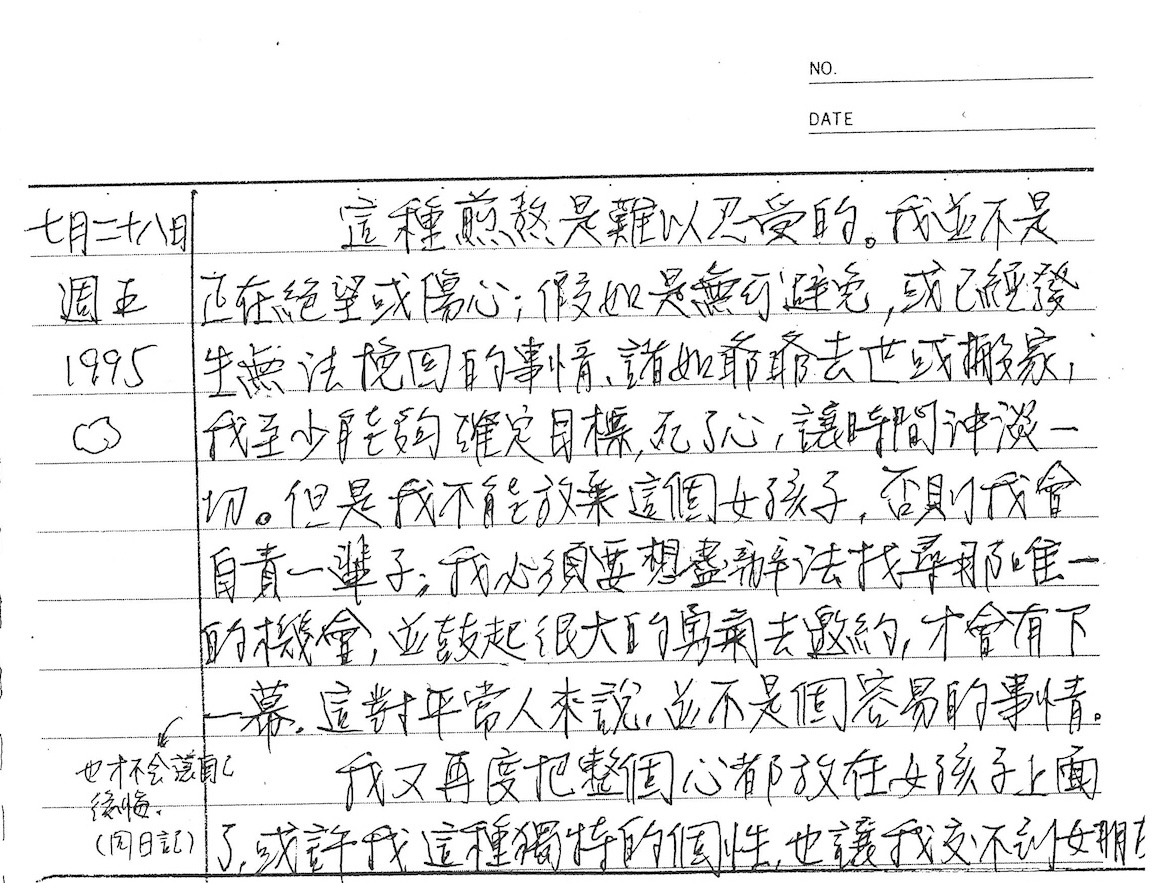 NO.
DATE
七月二十八日
週五
1995
這種煎熬是難以忍受的。我並不是
正在絕望或傷心；假如是無可避免，或已經發
生無法挽回的事情、諸如爺爺去世或搬家，
我至少能夠確定目標，死了心，讓時間沖淡一
切。但是我不能放棄這個女孩子，否則我會
自責一輩子；我必須要想盡辦法找尋那唯一
的機會，並鼓起很大的勇氣去邀約，才會有下
一幕，這對平常人來說，並不是個容易的事情。
也才不会讓自己
後悔。
(同日記)
我又再度把整個心都放在女孩子上面
了，或許我這種獨特的個性，也讓我交不到女朋友